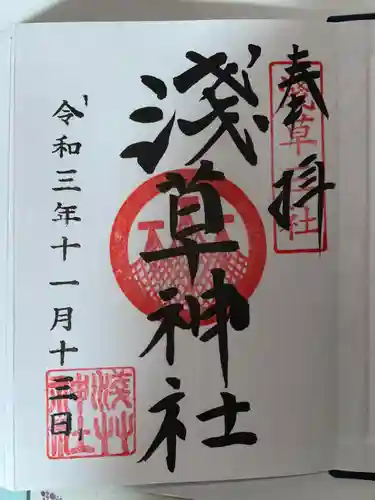 奉拝
淺草神社
令和三年十一月十三日
淺草神社